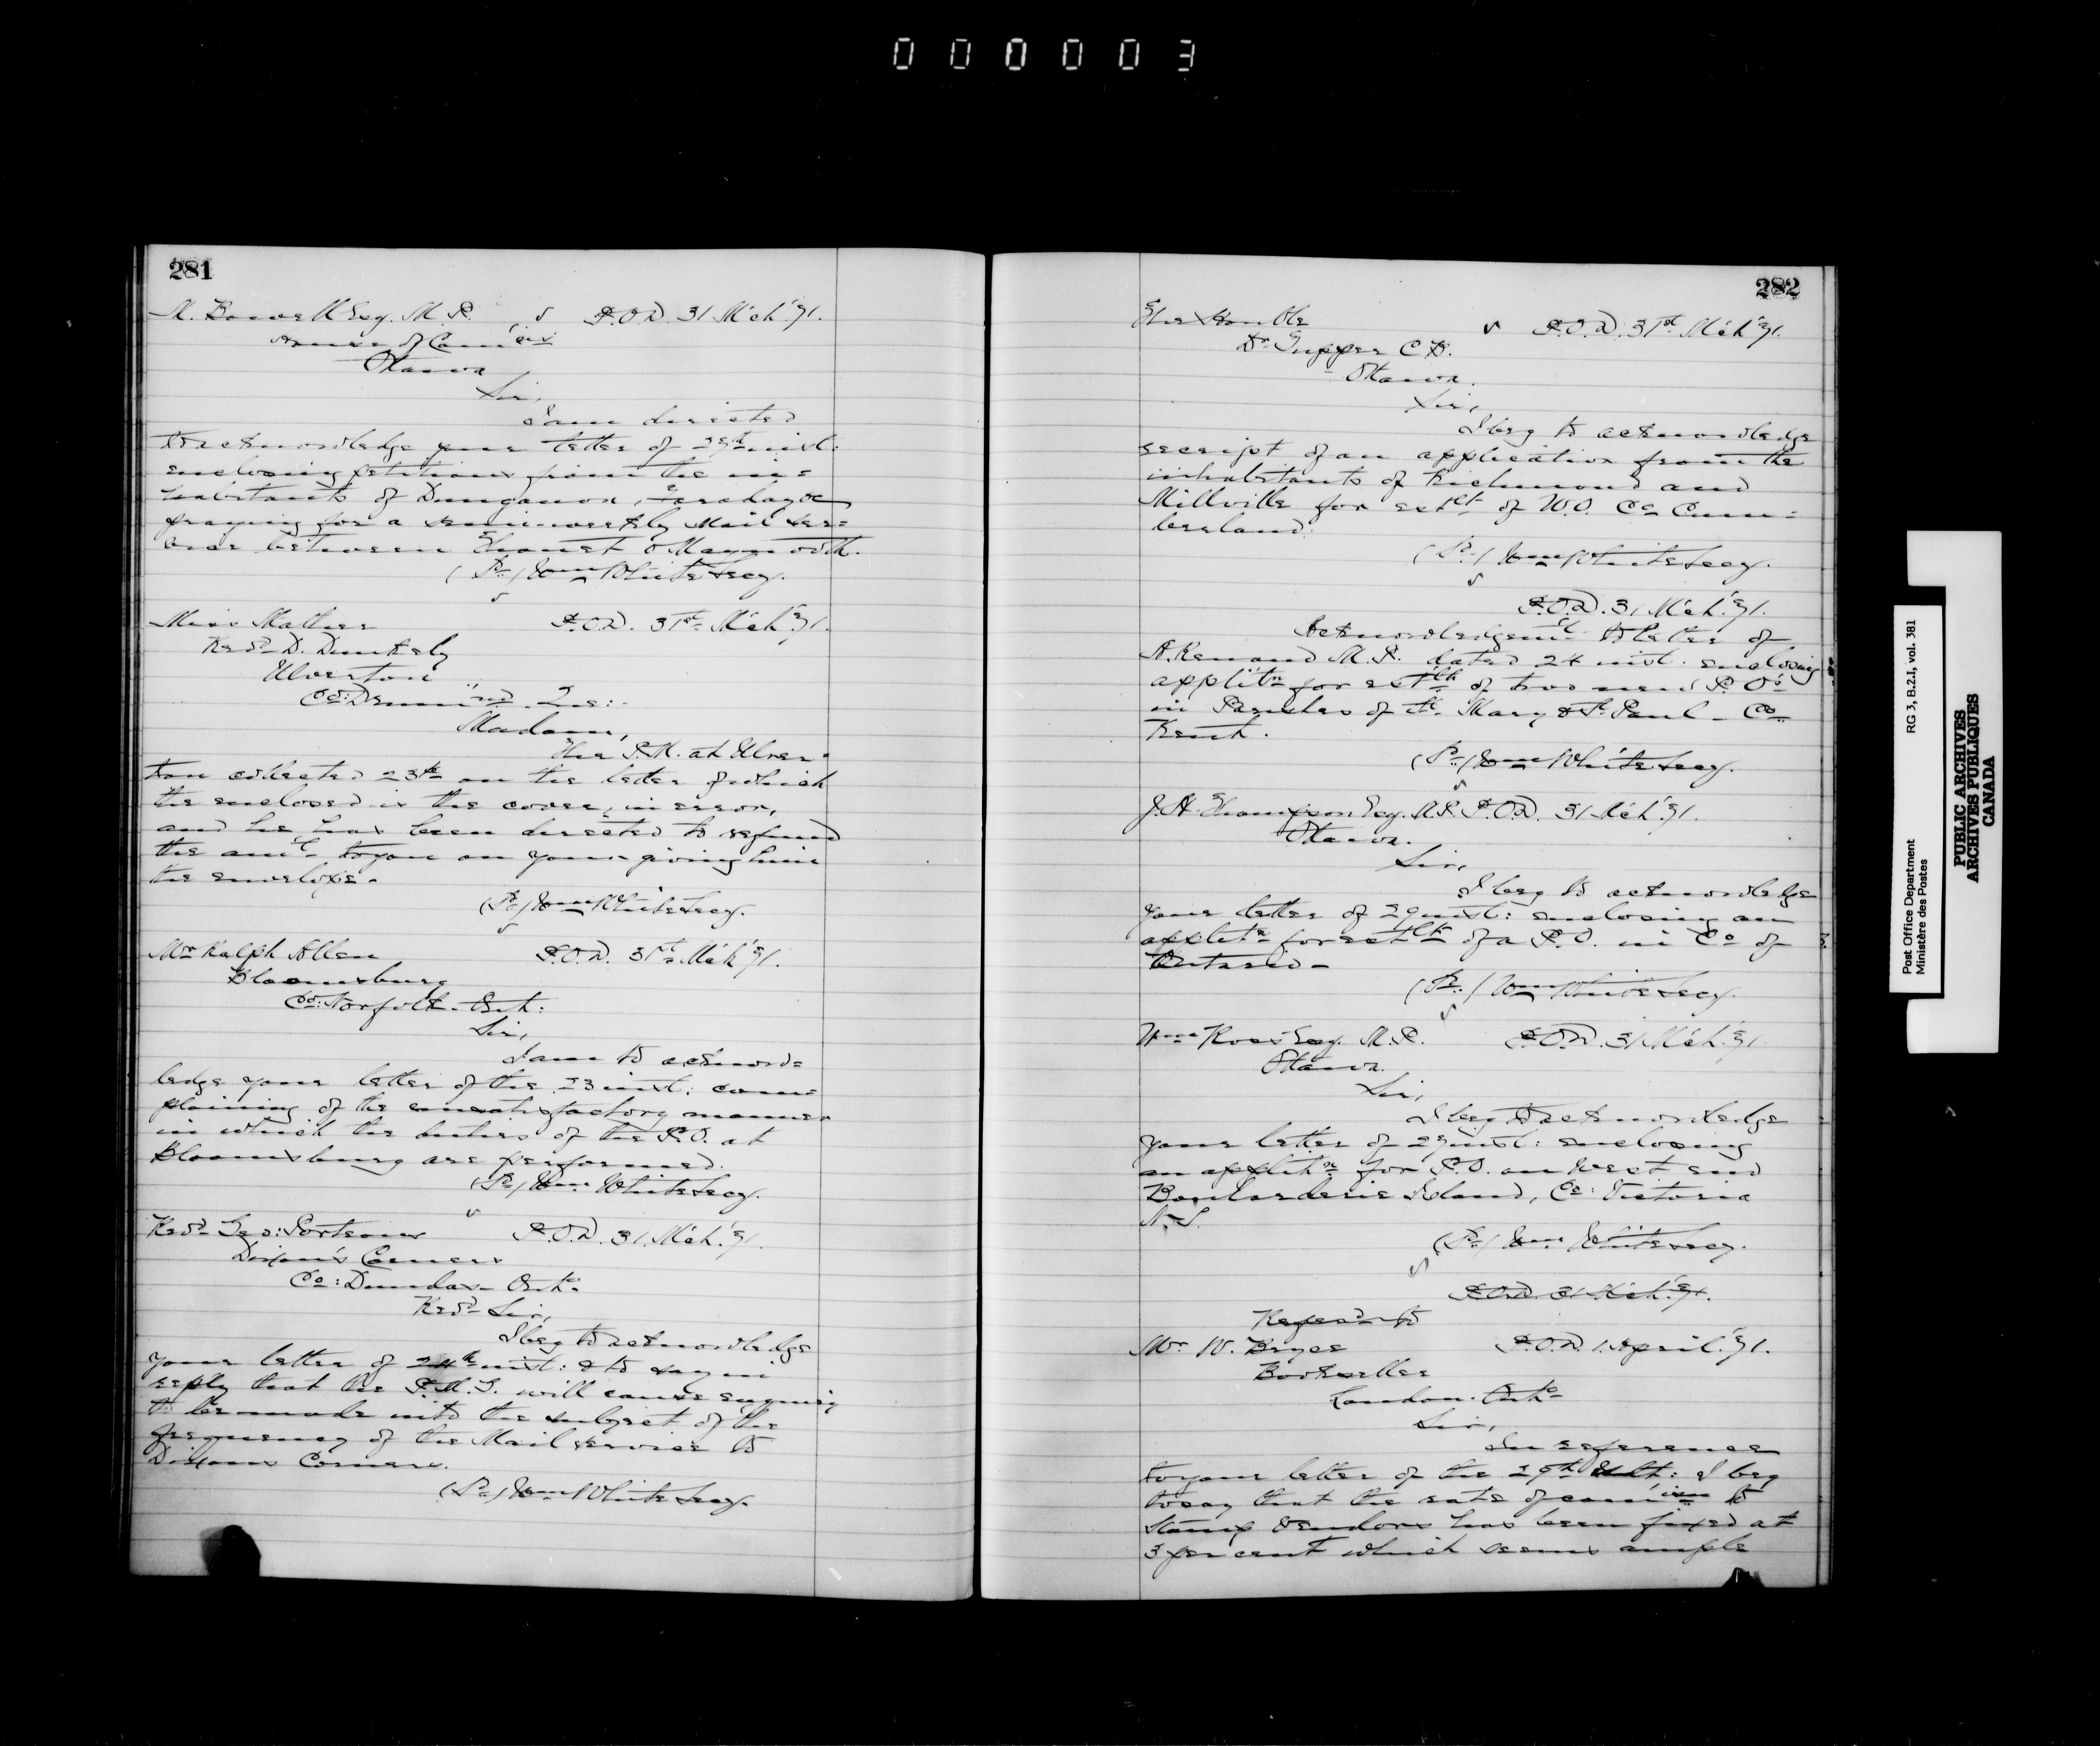 000003
281
M. Bowell Esq. M.P. P.O.D. 31 Mch '71.
House of Com:
Ottawa
Sir,
I am directed
to acknowledge your letter of 29th inst:
enclosing petitions from the in=
habitants of Dungannon, Faraday &c
praying for a semi-weekly Mail ser=
vice between Thanet & Maynooth.
(Sd.) Wm White Secy.
Miss Mather P.O.D. 31st Mch '71.
Revd D. Dunkerly
Ulverton
Co: Drummond Que:
Madam,
The P.M. at Ulver=
ton collected on the letter of which
the enclosed is the cover, in error,
and he has been directed to refund
the amt to you on your giving him
the envelope.
(Sd) Wm White Secy.
Mr Ralph Allen P.O.D. 31st Mch '71.
Bloomsburg
Co: Norfolk Ont:
Sir,
I am to acknow=
ledge your letter of the 23 inst: com=
plaining of the unsatisfactory manner
in which the duties of the P.O. at
Bloomsburg are performed.
(Sd) Wm White Secy.
Revd Geo: Porteous P.O.D. 31. Mch. '71.
Dixon's Corners
Co: Dundas Onto
Revd Sir,
I beg to acknowledge
your letter of 24th inst: & to say in
reply that the P.M.G. will cause enquiry
to be made into the subject of the
frequency of the Mail service to
Dixons Corners.
(Sd) Wm White Secy.
282
The Honble P.O.D. 31st Mch '71.
Dr Tupper C.B.
Ottawa.
Sir,
I beg to acknowledge
receipt of an application from the
inhabitants of Richmond and
Millville for estlt of W.O. Co Cum=
berland.
(Sd.) Wm White Secy.
P.O.D. 31 Mch. '71.
Acknowledgemt to letter of
A. Renaud M.P. dated 24 inst. enclosing
applitn for of two new P.O's
in Parishes of St. Mary & St. Paul - Co
Kent.
(Sd) Wm White Secy.
J.H. Thompson Esq. M.P. P.O.D. 31 Mch '71.
Ottawa.
Sir,
I beg to acknowledge
your letter of 29 inst: enclosing an
applitn for of a P.O. in Co of
Ontario -
(Sd.) Wm White Secy.
Wm Ross Esq. M.P. P.O.D. 31 Mch. '71
Ottawa.
Sir,
I beg to acknowledge
your letter of 29 inst: enclosing
an applitn for P.O. on West end
Boularderie Island, Co: Victoria
N.S.
(Sd) Wm White Secy.
P.O.D. 31 Mch. '71.
Refered to
Mr. W. Bryce P.O.D. 1. April. '71.
Bookseller
London. Onto
Sir,
In reference
to your letter of the 29th Ult: I beg
to say that the rate of comion to
Stamp Vendors has been fixed at
3 per cent which seems ample
Post Office Department RG 3, B.2.I, vol. 381
Ministère des Postes
PUBLIC ARCHIVES
ARCHIVES PUBLIQUES
CANADA